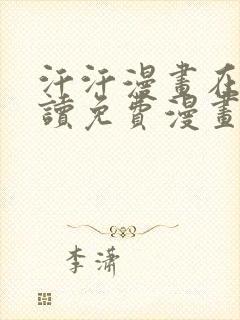 汗汗漫畫在
讀免費漫畫
李瀟